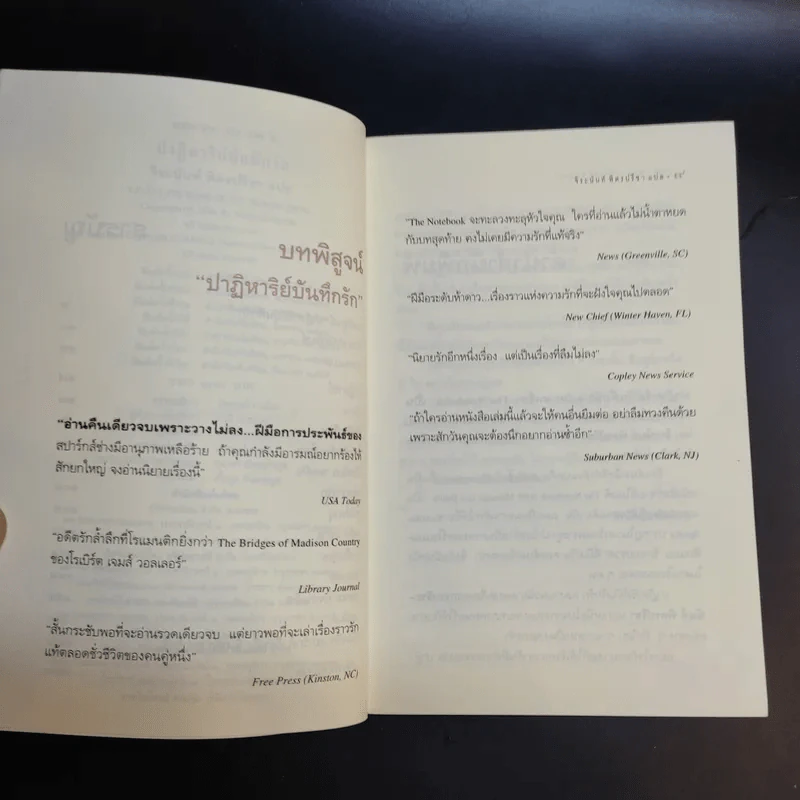 บทพิสูจน์
“ปาฏิหาริย์บันทึกรัก”
“อ่านคืนเดียวจบเพราะวางไม่ลง...ฝีมือการประพันธ์ของ
สปาร์กส์ช่างมีอานุภาพเหลือร้าย ถ้าคุณกำลังมีอารมณ์อยากร้องไห้
สักยกใหญ่ จงอ่านนิยายเรื่องนี้”
USA Today
“อดีตรักล้ำลึกที่โรแมนติกยิ่งกว่า The Bridges of Madison Country
ของโรเบิร์ต เจมส์ วอลเลอร์”
Library Journal
“สั้นกระชับพอที่จะอ่านรวดเดียวจบ แต่ยาวพอที่จะเล่าเรื่องราวรัก
แท้ตลอดชั่วชีวิตของคนคู่หนึ่ง”
Free Press (Kinston, NC)
จิระนันท์ พิตรปรีชา - แปล -
“The Notebook จะทะลวงทะลุหัวใจคุณ ใครที่อ่านแล้วไม่น้ำตาหยด
กับบทสุดท้าย คงไม่เคยมีความรักที่แท้จริง”
News (Greenville, SC)
“ฝีมือระดับห้าดาว...เรื่องราวแห่งความรักที่จะฝังใจคุณไปตลอด”
New Chief (Winter Haven, FL)
“นิยายรักอีกหนึ่งเรื่อง แต่เป็นเรื่องที่ลืมไม่ลง”
Copley News Service
“ถ้าใครอ่านหนังสือเล่มนี้แล้วจะให้คนอื่นยืมต่อ อย่าลืมทวงคืนด้วย
เพราะสักวันคุณจะต้องนึกอยากอ่านซ้ำอีก”
Suburban News (Clark, NJ)